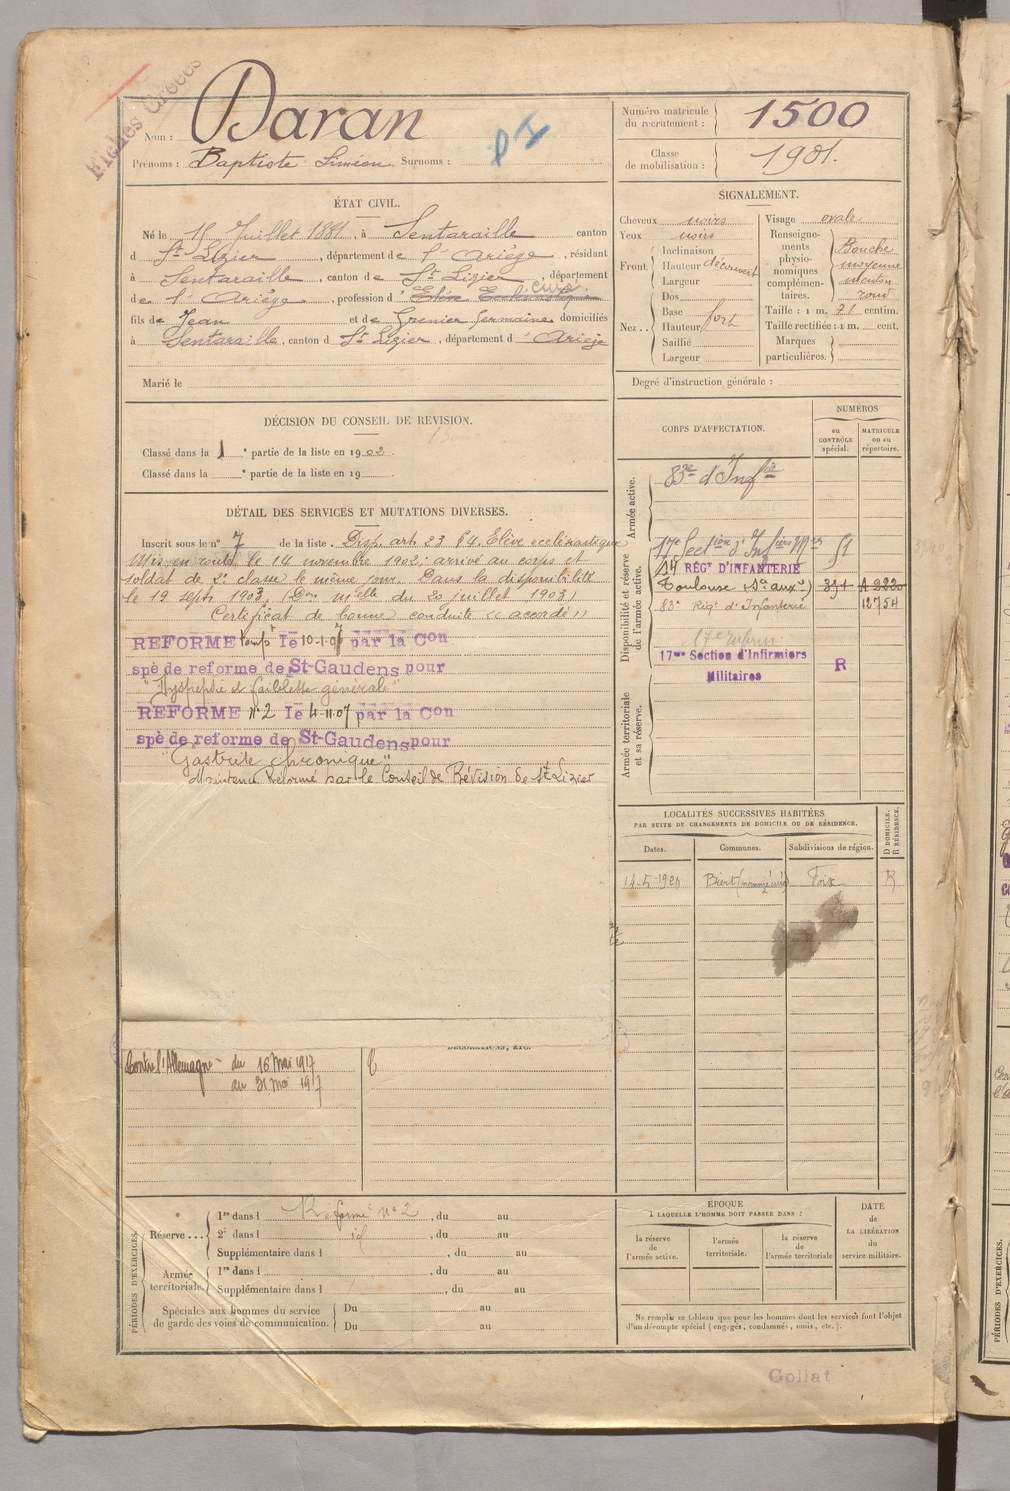 Fiches Créées
Nom : Daran
Prénoms : Baptiste Simeon Surnoms :
Numéro matricule du recrutement : 1500
Classe de mobilisation : 1901.
ÉTAT CIVIL.
Né le 15 Juillet 1881, à Sentaraille canton
d St Lizier, département de l'Ariège, résidant
à Sentaraille, canton de St Lizier, département
de l'Ariège, profession d'Elève Ecclésiastique curé.
fils de Jean et de Grenier Germaine domiciliés
à Sentaraille, canton d St Lizier, département d'Ariège
Marié le
SIGNALEMENT.
Cheveux noirs
Yeux noirs
Front. Inclinaison
Hauteur découvert
Largeur
Nez . . Dos
Base
Hauteur fort
Saillie
Largeur
Visage ovale
Renseignements physionomiques complémentaires. Bouche moyenne menton rond
Taille : 1 m. 71 centim.
Taille rectifiée : 1 m. cent.
Marques particulières.
Degré d'instruction générale :
DÉCISION DU CONSEIL DE REVISION.
Classé dans la 1e partie de la liste en 1902.
Classé dans la e partie de la liste en 19
CORPS D'AFFECTATION.
NUMÉROS
au CONTRÔLE spécial.
MATRICULE ou au répertoire.
Armée active.
83e d'Infie
Disponibilité et réserve de l'armée active.
17e Secton d'Infiers Mres 51
14 REGt D'INFANTERIE
Toulouse (Son auxre) 351 A 2220
83e Régt d'Infanterie 12754
17e
17me Section d'Infirmiers Militaires R
Armée territoriale et sa réserve.
DÉTAIL DES SERVICES ET MUTATIONS DIVERSES.
Inscrit sous le no 7 de la liste. Disp. art. 23 §4. Elève ecclésiastique
Mis en route le 14 novembre 1902: arrivé au corps et
soldat de 2e classe le même jour. Dans la disponibilité
le 19 septe 1903. (Don melle du 20 juillet 1903)
Certificat de bonne conduite "accordé"
REFORME tempre le 10-1-07 par la Con
spè de reforme de St-Gaudens pour
"Dyspepsie et faiblesse générale"
REFORME No 2 le 4-11-07 par la Con
spè de reforme de St-Gaudens pour
"Gastrite chronique"
Maintenu Réformé par le Conseil de Révision de St Lizier
LOCALITÉS SUCCESSIVES HABITÉES
PAR SUITE DE CHANGEMENTS DE DOMICILE OU DE RÉSIDENCE.
Dates. Communes. Subdivisions de région. D DOMICILE. R RÉSIDENCE.
14-5-1920 Biert (nommé curé) Foix R
DÉCORATIONS, ETC.
Contre l'Allemagne du 16 Mai 1917
au 31 Mai 1917
PÉRIODES D'EXERCICES.
Réserve . . . 1re dans l Réformé no 2, du au
2e dans l id, du au
Supplémentaire dans l, du au
Armée territoriale. 1re dans l, du au
Supplémentaire dans l, du au
Spéciales aux hommes du service de garde des voies de communication. Du au
Du au
ÉPOQUE
À LAQUELLE L'HOMME DOIT PASSER DANS :
la réserve de l'armée active.
l'armée territoriale.
la réserve de l'armée territoriale
DATE de LA LIBÉRATION du service militaire.
Ne remplir ce tableau que pour les hommes dont les services font l'objet
d'un décompte spécial (engagés, condamnés, omis, etc.).
Gollat
PÉRIODES D'EXERCICES.